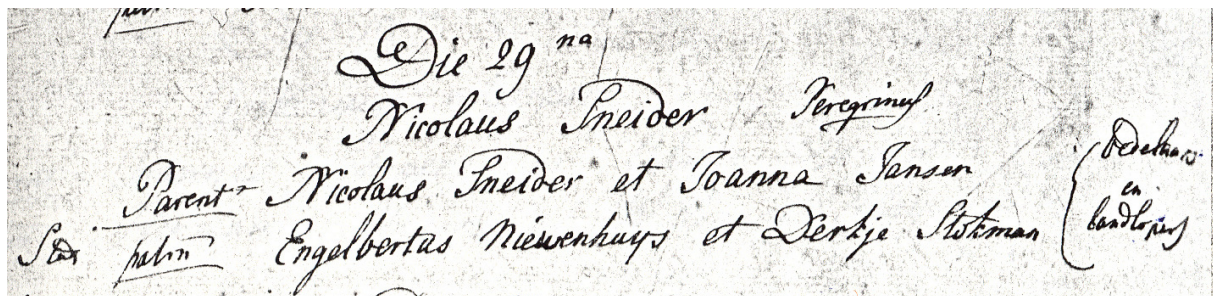 Die 29 na
Nicolaus Sneider Peregrinus
Parent Nicolaus Sneider et Joanna Jansen
Engelbertus Niewenhuys et Derkje Stokman
bedelaars
en
landlopers